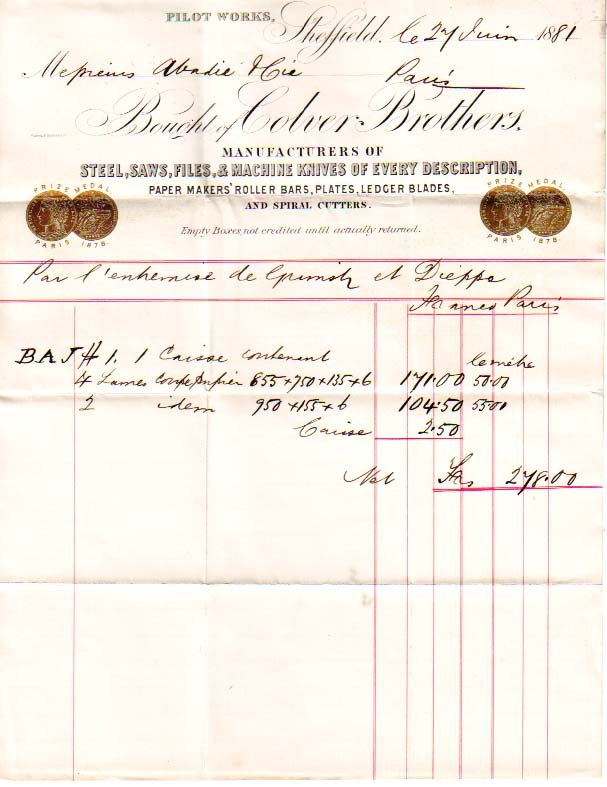 PILOT WORKS,
Sheffield, le 27 Juin 1881
Messieurs Abadie & Cie Paris
Bought of Colver Brothers,
MANUFACTURERS OF
STEEL, SAWS, FILES, & MACHINE KNIVES OF EVERY DESCRIPTION,
PAPER MAKERS' ROLLER BARS, PLATES, LEDGER BLADES,
AND SPIRAL CUTTERS.
PRIZE MEDAL
PARIS 1878.
PRIZE MEDAL
PARIS 1878.
Empty Boxes, not credited until actually returned.
Par l'entremise de Grimsby et Dieppe
Francs Paris
BAJ # 1. 1 Caisse contenant le mètre
4 Lames coupe papier 855 + 750 + 135 + 6 171.00 50.00
2 idem 950 + 155 + 6 104.50 55.00
Caisse 2.50
Net Frs 278.00